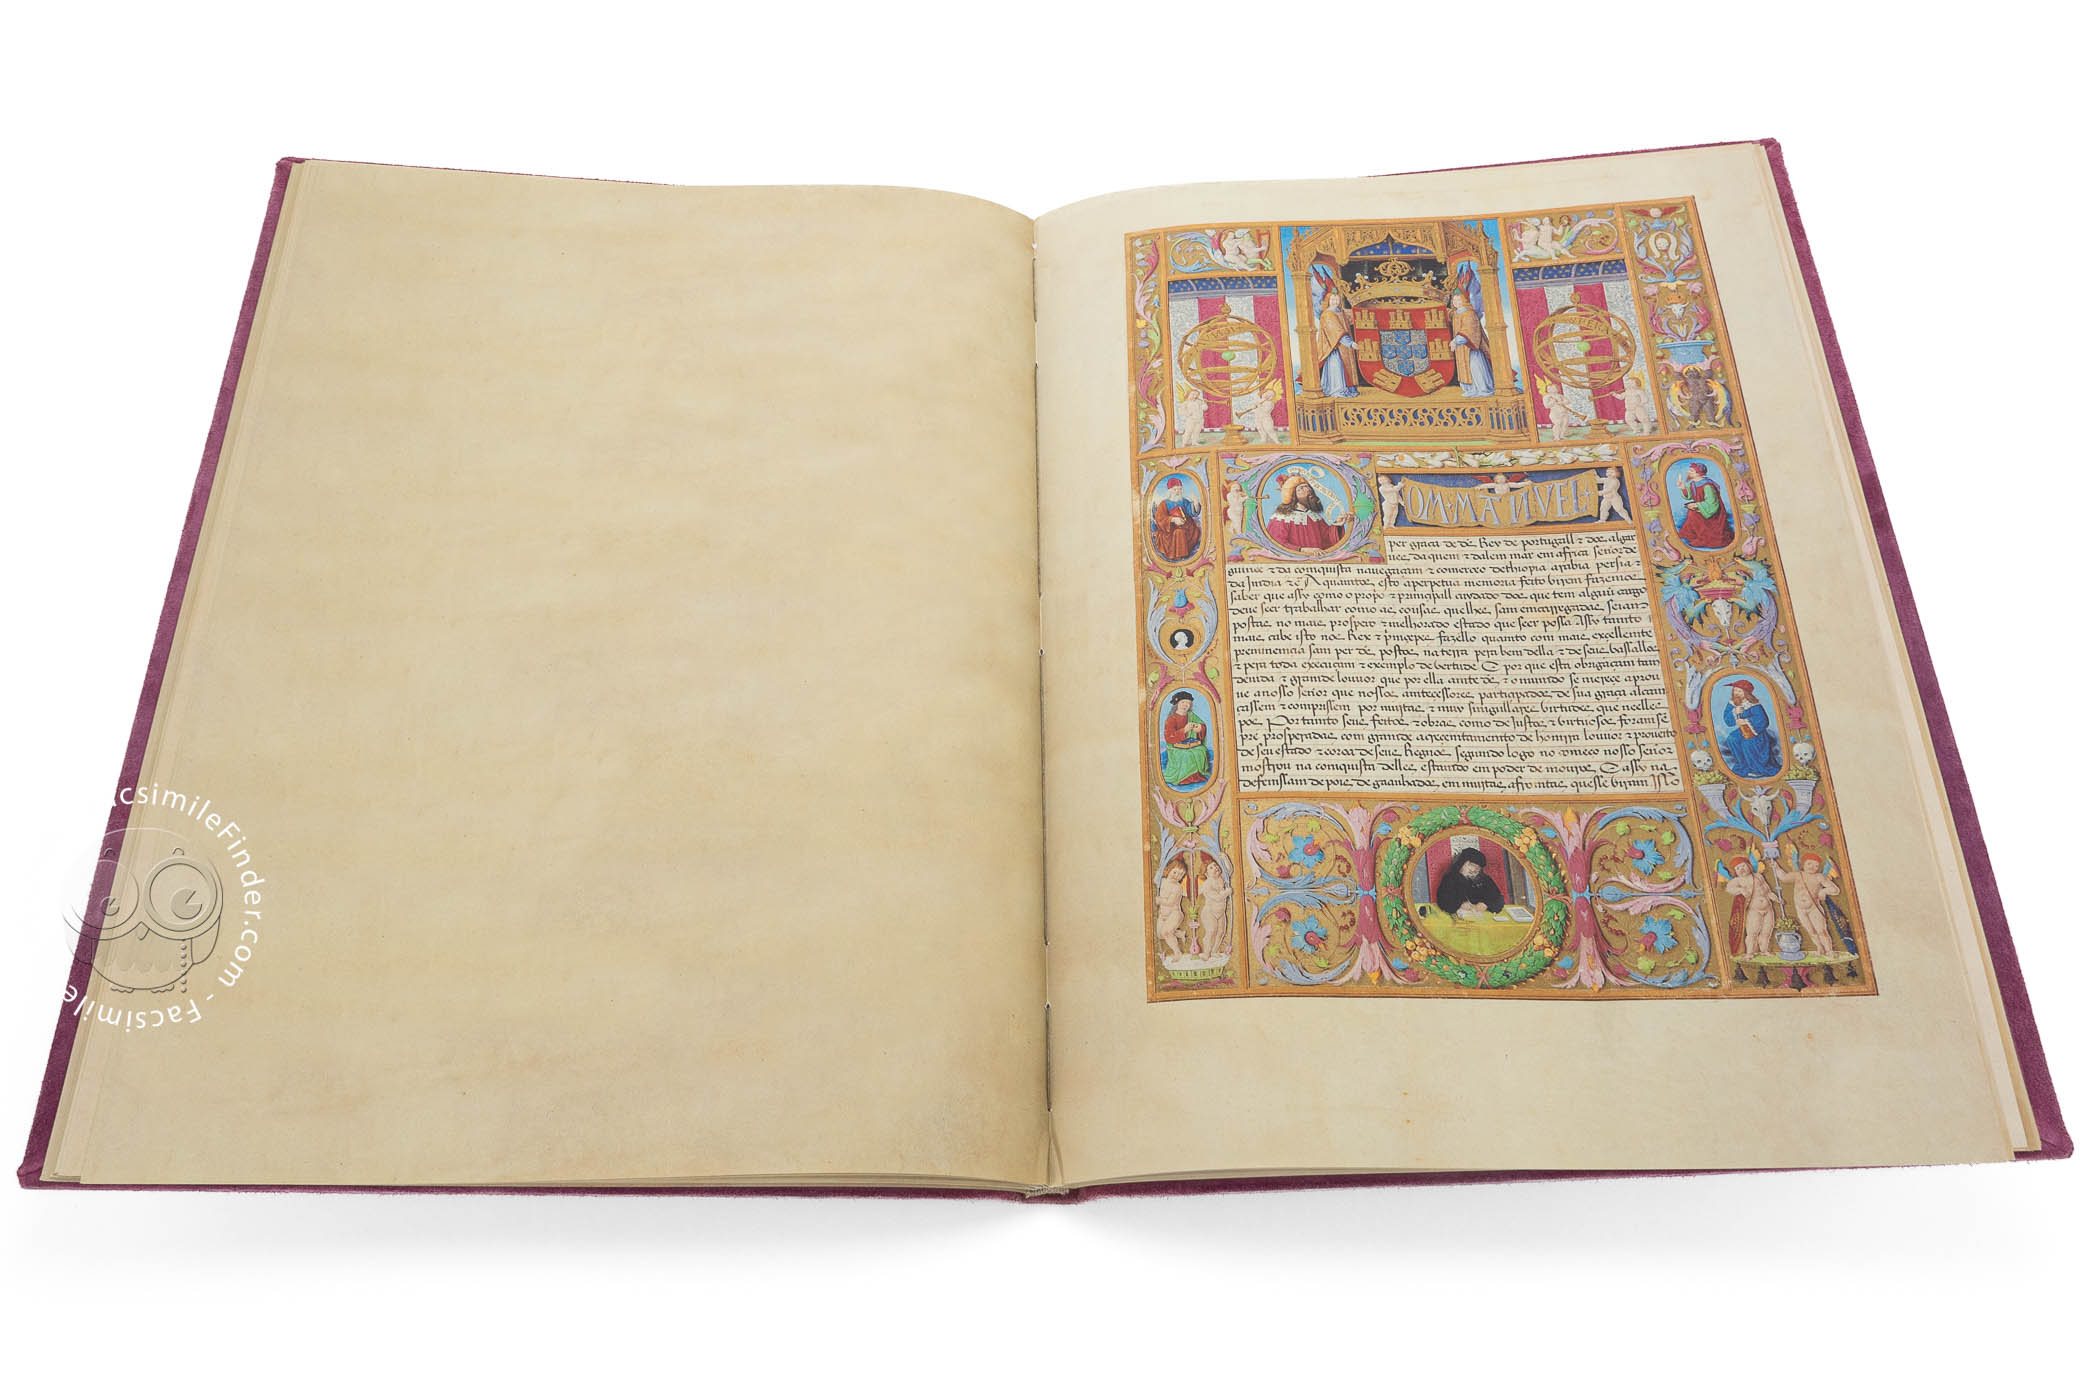 OM·MANVEL
per graça de ds̄ Rey de portugall & dos algar
ues daquem & dalem mar em africa señor de
guinee & da comquista nauegacam & comercio dethiopia arabia persia &
da Jndia &c̄ A quamtos esto aperpetua memoria feito birem fazemos
saber que assy como o propio & principall cuydado dos que tem alguũ cargo
deue seer trabalhar como as cousas quelhes sam emcarregadas seiam
postas no mais prospero & melhorado estado que seer possa Assy tamto
mais cabe isto nos Reys & prinçepes fazello quamto com mais excellente
preminemcia sam per ds̄ postos na terra pera bem della & de seus bassallos
& pera toda execucam & exemplo de bertude E por que esta obrigaçam tam
deuida & grande louuor que por ella amte ds̄ & o mundo se mereçe aprou
ue a nosso señor que nossos amtecessores partiçipados de sua graça alcan
çassem & comprissem por muytas & muy simgullares birtudes que nelles
pos Por tamto seus feitos & obras como de justos & birtuosos foram sē
pre prosperadas com grande acreçemtamento de homrra louuor & proueito
de seu estado & coroa de seus Regnos segundo logo no começo nosso señor
mostrou na comquista delles estamdo em poder de mouros E assy na
defenssam depois de gaanhados em muytas afromtas quesse biram Isso
FacsimileFinder.com - Facsimile